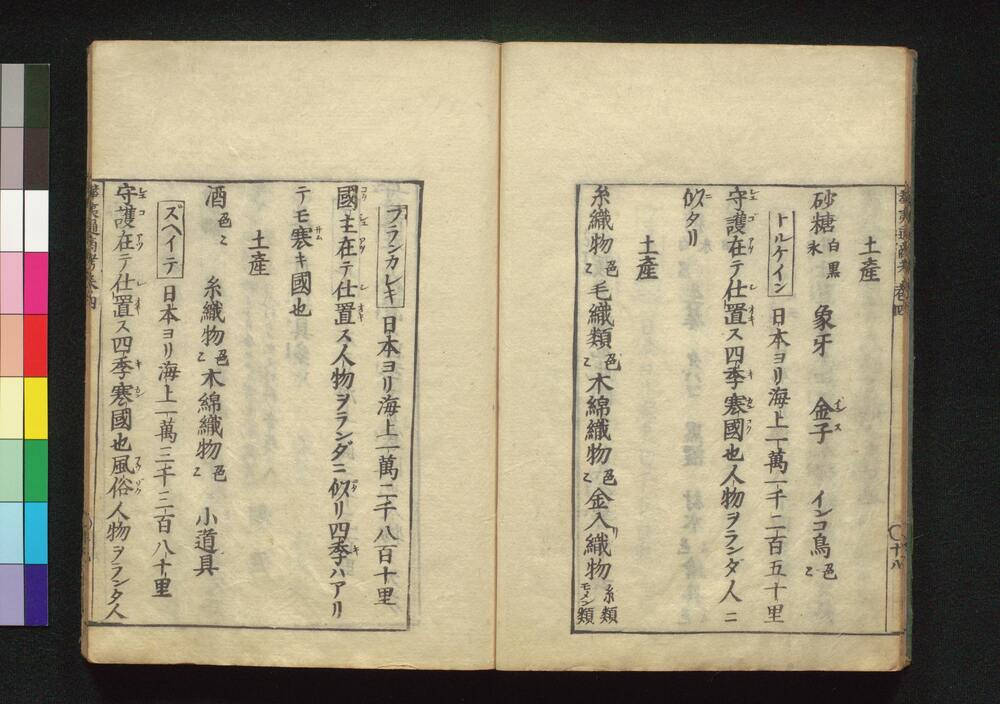 土産
砂糖 白 黒 氷 象牙 金子 インコ鳥 色〻
トルケイン 日本ヨリ海上一萬一千二百五十里
守護在テ仕置ス四季寒國也人物ヲランダ人ニ
似タリ
土産
糸織物 色〻 毛織類 色〻 木綿織物 色〻 金入織物 糸類 モメン類
華夷通商考巻四 〇十八
フランカレキ 日本ヨリ海上一萬二千八百十里
國主在テ仕置ス人物ヲランダニ似リ四季ハアリ
テモ寒キ國也
土産
酒 色〻 糸織物 色〻 木綿織物 色〻 小道具
ズヘイテ 日本ヨリ海上一萬三千三百八十里
守護在テ仕置ス四季寒國也風俗人物ヲランタ人
華夷通商考巻四